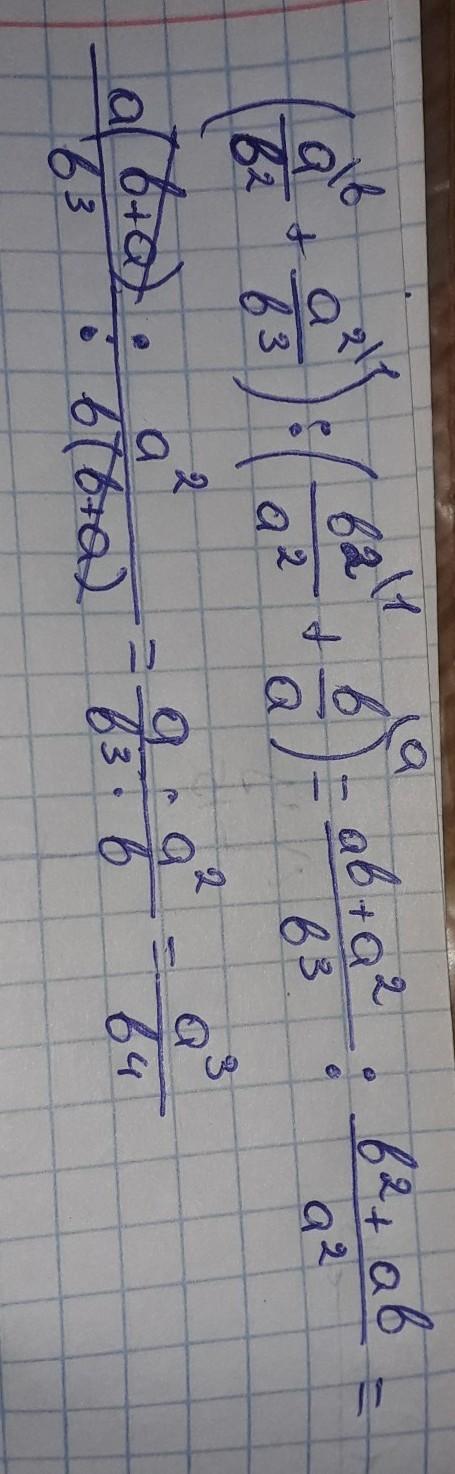 (a\b/b² + a²\1/b³) : (b²\1/a² + b\a/a) = ab+a²/b³ : b²+ab/a² =
a(b+a)/b³ : a²/b(b+a) = a/b³ · a²/b = a³/b⁴